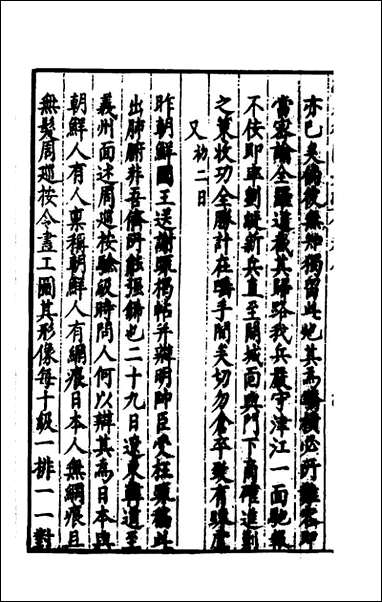 亦已矣倘彼無知獨留此地其為驕橫必所難容即
當密諭全羅道截其歸路我兵嚴守津江一面馳報
不佞即率劉綎新兵直至開城面與門下商確進剿
之策收功全勝計在唾手間矣切勿倉卒致有疎虞
又初二日
昨朝鮮國王送謝疏揭帖并辯明帥臣受枉疏稿此
出肺腑非吾儕所能強飾也二十九日遼東韓道至
義州面述周巡按驗級時問人何以辯其為日本與
朝鮮人有人稟稱朝鮮人有網痕日本人無網痕且
無髮周巡按令畫工圖其形像每十級一排一一對